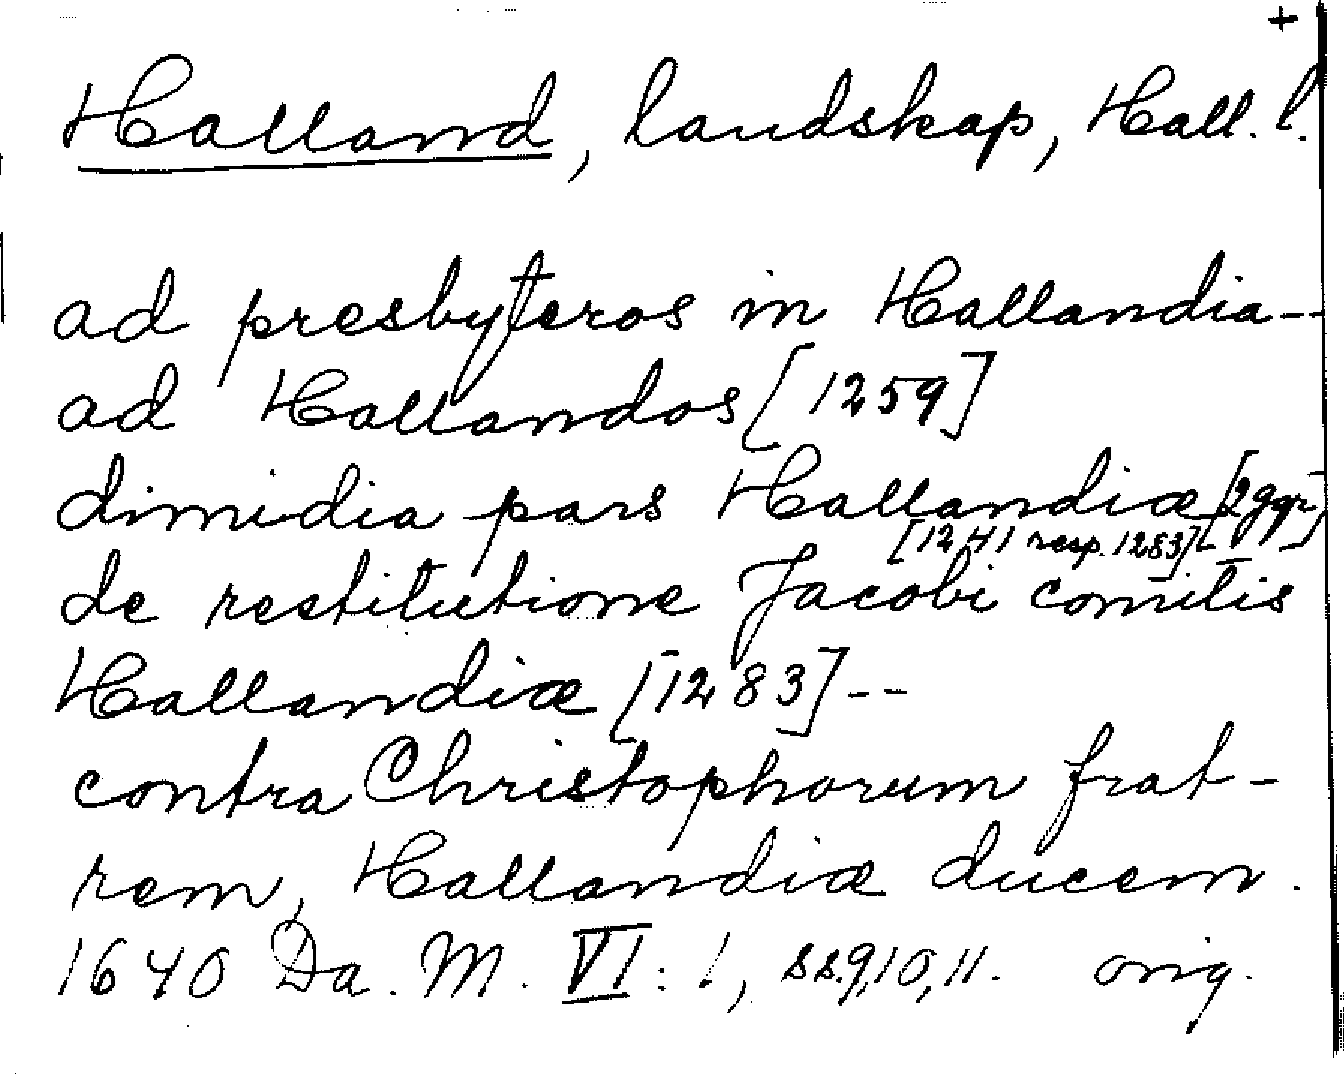 +
Halland, landskap, Hall. l.
ad presbyteros in Hallandia--
ad Hallandos [1259]
dimidia pars Hallandiæ [2ggr]
[1241 resp. 1283]
de restitutione Jacobi comitis
Hallandiæ [1283]--
contra Christophorum frat-
rem, Hallandiæ ducem.
1640 Da. M. VI: 1, ss.9,10,11. orig.